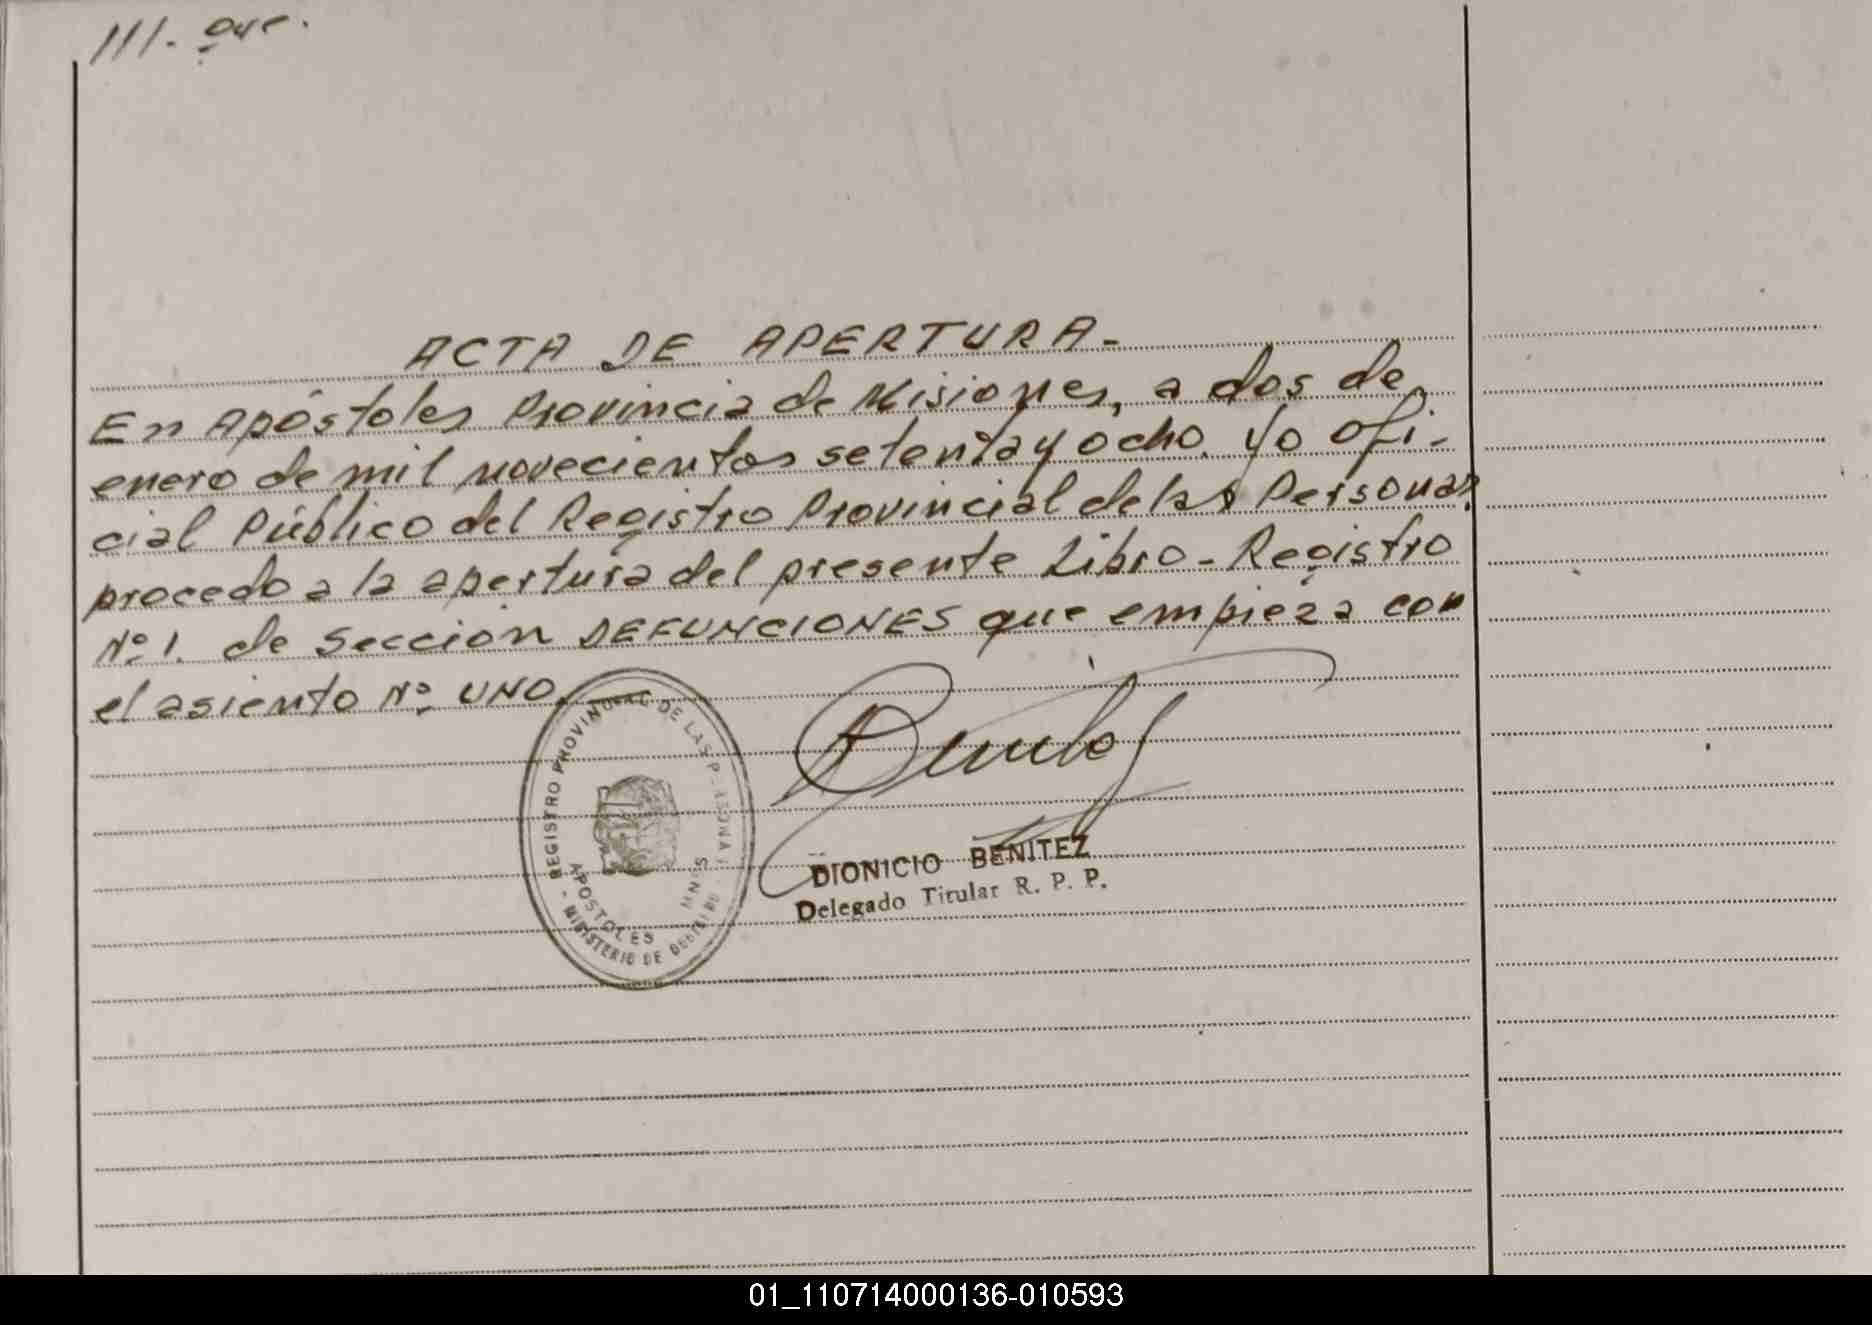 ///. que.
ACTA DE APERTURA.-
En Apóstoles Provincia de Misiones, a dos de
enero de mil novecientos setenta y ocho. Yo ofi-
cial Público del Registro Provincial de las Personas
procedo a la apertura del presente Libro-Registro
Nº 1. de Sección DEFUNCIONES que empieza con
el asiento Nº UNO.
- REGISTRO PROVINCIAL DE LAS PERSONAS
APOSTOLES MNES
- MINISTERIO DE GOBIERNO
DIONICIO BENITEZ
Delegado Titular R. P. P.
01_110714000136-010593